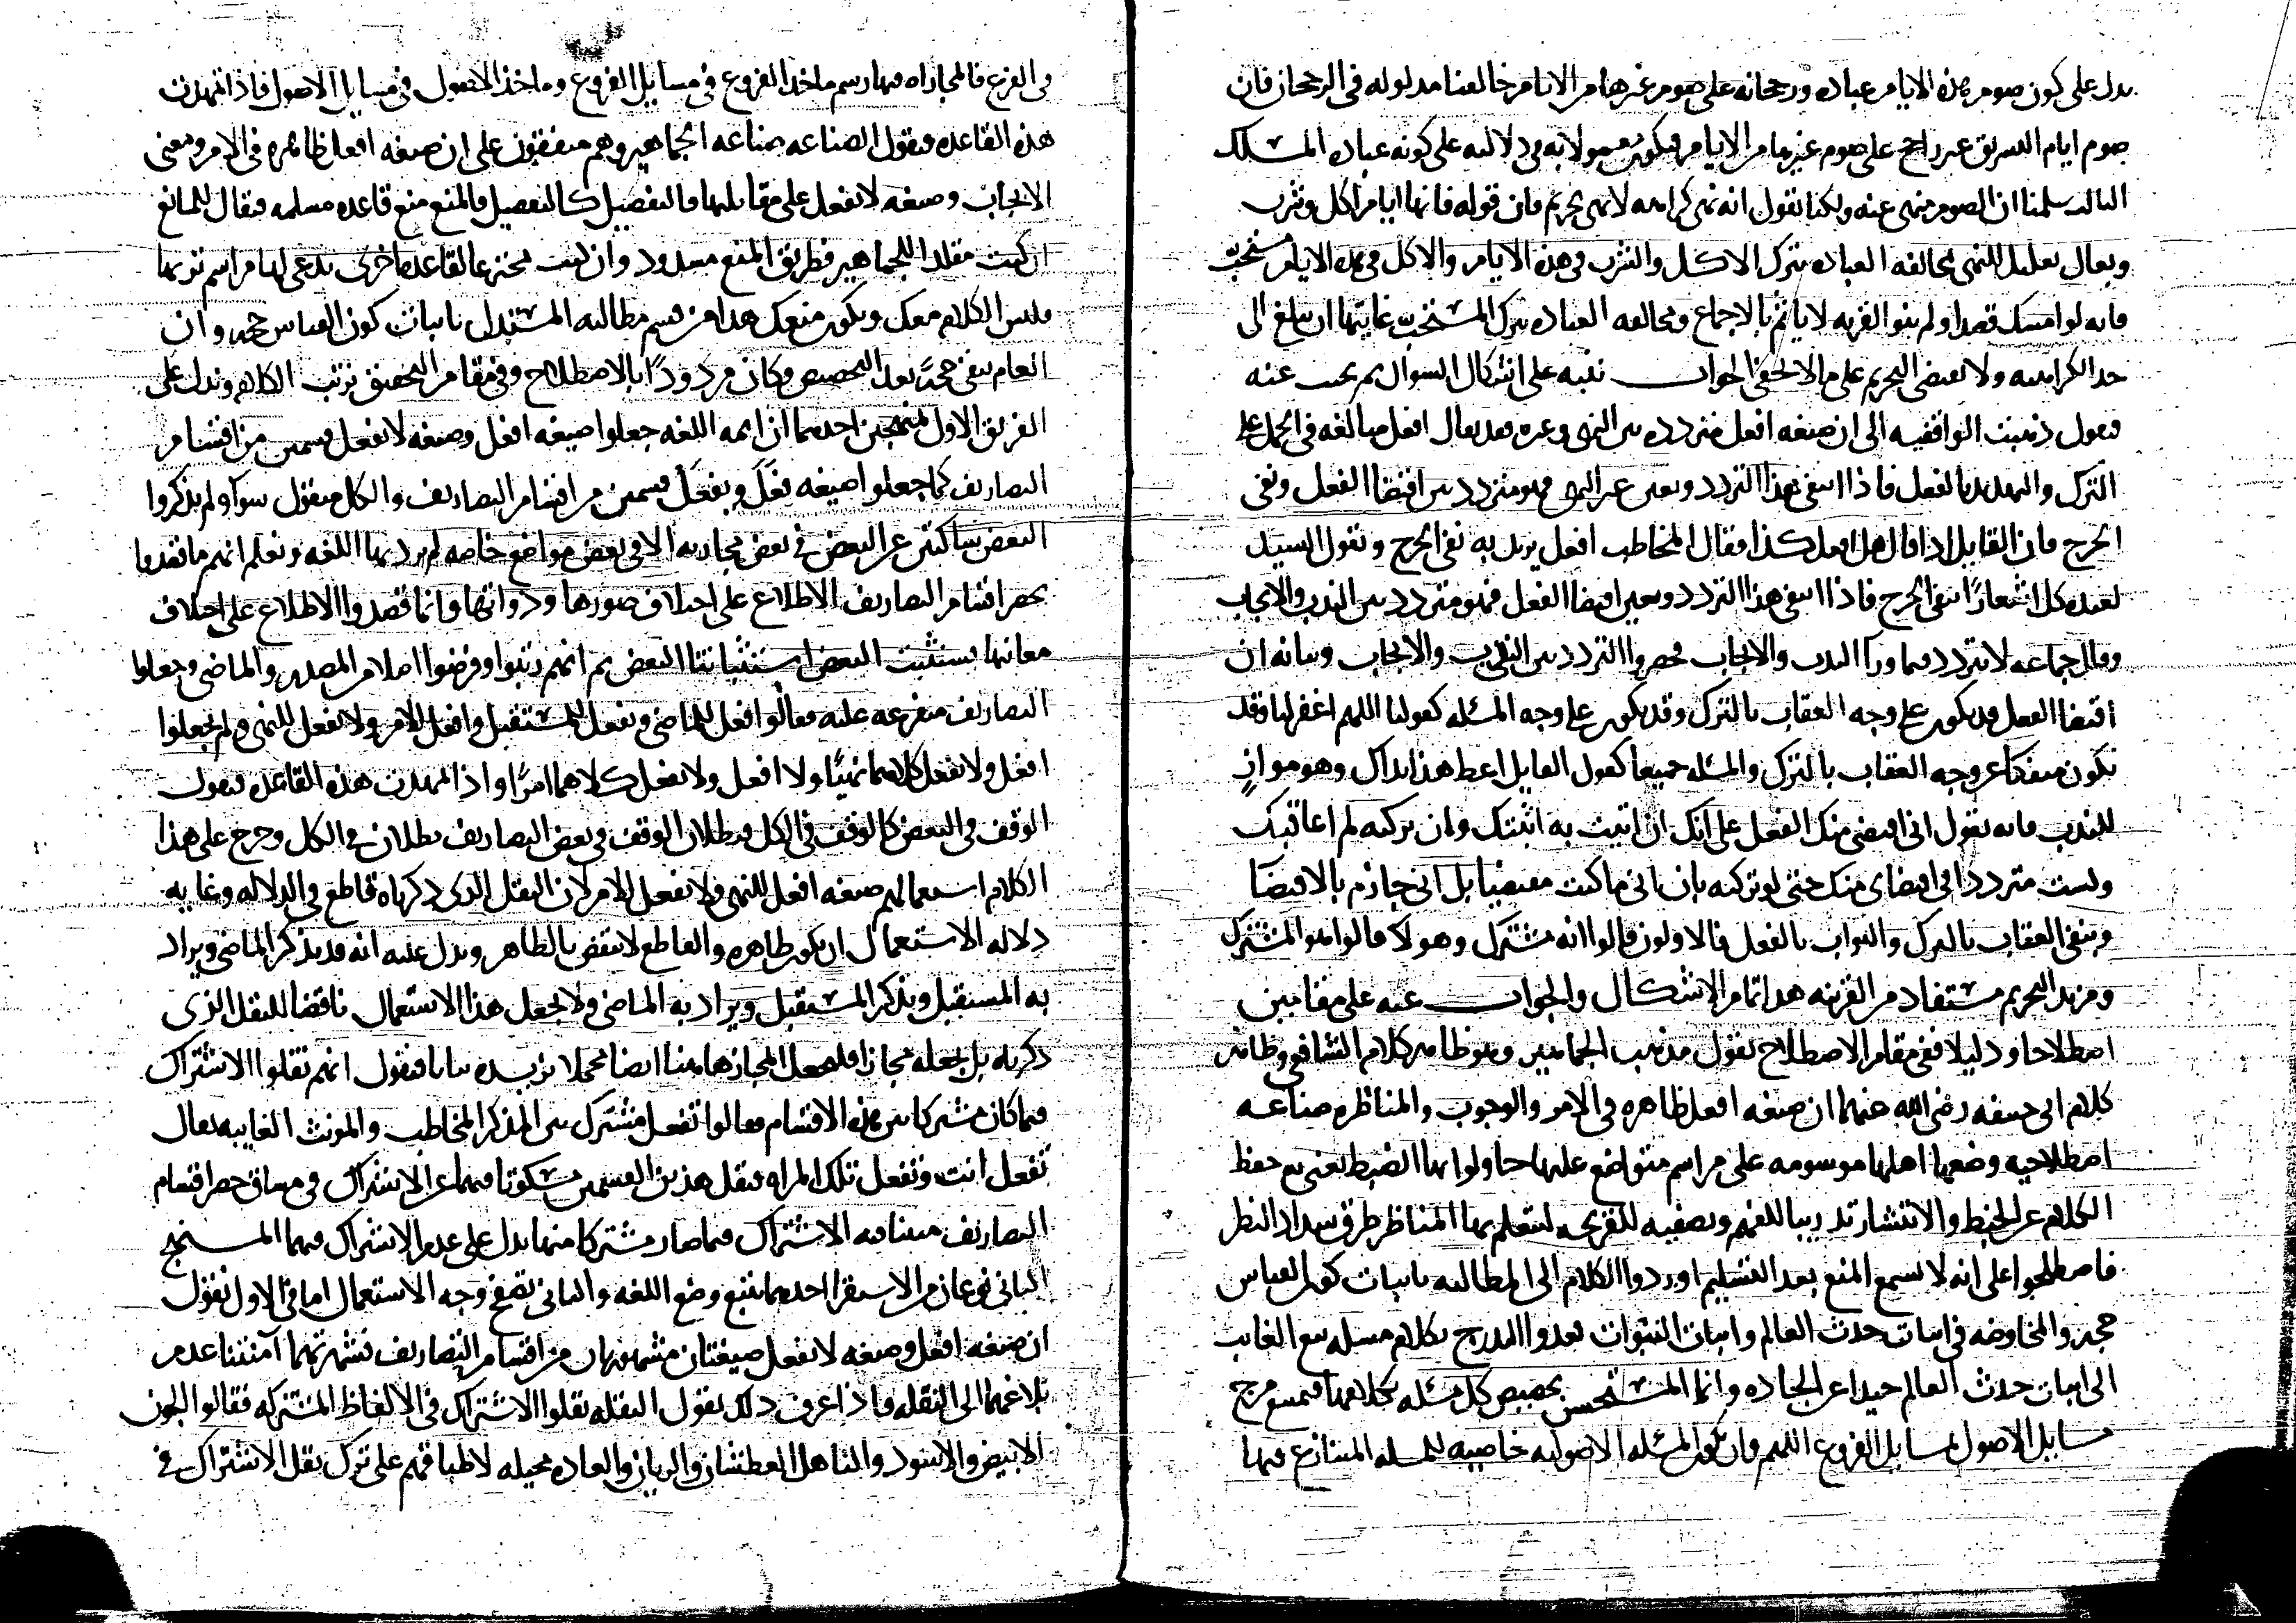 يدل على كون صوم هذه الايام عباده ورجحانه على صوم غيرها من الايام خالفنا مدلوله في الرجحان فان
صوم ايام التشريق غير راجح على صوم غيرها من الايام فيكون معمولا به في دلالته على كونه عباده المسلك
الثالث سلمنا ان الصوم منهي عنه ولكنا نقول انه نهي كراهه لا نهي تحريم فان قوله فانها ايام اكل وشرب
وبعال تعليل للنهي بمخالفه العباده بترك الاكل والشرب في هذه الايام والاكل في هذه الايام مستحب
فانه لو امسك قصدا ولم ينو القربه لا ياثم بالاجماع ومخالفه العباده بترك المستحب غايتها ان يبلغ الى
حد الكراهيه ولا يقتضي التحريم على ما لا يخفى الجواب ننبه على اشكال السوال ثم نجيب عنه
فنقول ذهبت الواقفيه الى ان صيغه افعل متردده بين النهي وغيره فقد يقال افعل مبالغه في الحمل على
الترك والتهديد بالفعل فاذا انتفى هذا التردد وتعين غير النهي فهو متردد بين اقتضا الفعل ونفي
الحرج فان القايل اذا قال هل افعل كذا فقال المخاطب افعل يريد به نفي الحرج ونقول السيد
لعبده كل اشعارا بنفي الحرج فاذا انتفى هذا التردد وتعين اقتضا الفعل فهو متردد بين الندب والايجاب
وقال جماعه لا تتردد فيما ورا الندب والايجاب فحصروا التردد بين الندب والايجاب وبيانه ان
اقتضا الفعل قد يكون على وجه العقاب بالترك وقد يكون على وجه المسئله كقولنا اللهم اغفر لنا وقد
يكون منفكا عن وجه العقاب بالترك والمسئله جميعا كقول القايل اعط هذا بذاك وهو موازٍ
للندب فانه يقول اني اقتضي منك الفعل على انك ان اتيت به اثبتك وان تركته لم اعاقبك
ولست مترددا في اقتضاي منك حتى لو تركته بان اني ما كنت مقتضيا بل اني جازم بالاقتضا
وينفي العقاب بالترك والثواب بالفعل فالاولون قالوا انه مشترك وهولا قالوا هو المشترك
ومزيد التحريم مستفاد من القرينه هذا تمام الاشكال والجواب عنه على مقامين
اصطلاحا ودليلا ففي مقام الاصطلاح نقول مذهب الجماهير وهو ظاهر كلام الشافعي وظاهر
كلام ابي حنيفه رضي الله عنهما ان صيغه افعل ظاهره في الامر والوجوب والمناظره صناعه
اصطلاحيه وضعها اهلها موسومه على مراسم متواضع عليها حاولوا بها الضبط لمعنى مع حفظ
الكلام عن الخبط والانتشار تدريبا للفهم وتصفيه للقريحه ليتعلم بها المناظر طرق سداد النظر
فاصطلحوا على انه لا يسمع المنع بعد التسليم اوردوا الكلام الى المطالبه باثبات كون القياس
حجه والمخاوضه في اثبات حدث العالم واثبات النبوات فعدوا التدرج بكلام مسله بيع الغايب
الى اثبات حدث العالم حيدا عن الجاده وانما المستحسن تخصيص كل مسئله بكلامها فيمنع مزج
مسايل الاصول بمسايل الفروع اللهم وان يكون المسئله الاصوليه خاصيه للمسله المتنازع فيها
وفي الفرع فالمجاراه فيها رسم ماخذ الفروع في مسايل الفروع وماخذ الاصول في مسايل الاصول فاذا تمهدت
هذه القاعده فنقول الصناعه صناعه الجماهير وهم متفقون على ان صيغه افعل ظاهره في الامر ومعنى
الايجاب وصيغه لا تفعل على مقابلتها فالتفصيل كالتفصيل والمنع منع قاعده مسلمه فيقال للمانع
ان كنت مقلدا للجماهير فطريق المنع مسدود وان كنت مخترعا لقاعده اخرى تدعي لها مراسم تربها
فليس الكلام معك ويكون منعك هذا من قسم مطالبه المستدل باثبات كون القياس حجه وان
العام يبقى حجه بعد التخصيص وكان مردودا بالاصطلاح وفي مقام التحقيق نرتب الكلام وندل على
الفريق الاول بمنهجين احدهما ان ايمه اللغه جعلوا صيغه افعل وصيغه لا تفعل قسمين من اقسام
التصاريف كما جعلوا صيغه فعل ويفعل قسمين من اقسام التصاريف والكل منقول سوا ولم يذكروا
البعض ساكتين عن البعض في بعض مجاريه الا في بعض مواضع خاصه لم ترد بها اللغه ونعلم انهم ما قصدوا
بحصر اقسام التصاريف الاطلاع على اختلاف صورها وذواتها وانما قصدوا الاطلاع على اختلاف
معانيها يستثبت البعض استثباتنا البعض ثم انهم رتبوا وفرضوا اعلام المصدر والماضي وجعلوا
التصاريف متفرعه عليه فقالوا فعل للماضي ويفعل للمستقبل وافعل للامر ولا تفعل للنهي ولم يجعلوا
افعل ولا تفعل كلاهما نهيا ولا افعل ولا تفعل كلاهما امرا واذا تمهدت هذه القاعده فنقول
الوقف في البعض كالوقف في الكل وبطلان الوقف في بعض التصاريف بطلان في الكل وخرج على هذا
الكلام استعمالهم صيغه افعل للنهي ولا تفعل للامر لان النقل الذي ذكرناه قاطع في الدلاله وغايه
دلاله الاستعمال ان يكون ظاهره والقاطع لا ينتقض بالظاهر ويدل عليه انه قد يذكر الماضي ويراد
به المستقبل ويذكر المستقبل ويراد به الماضي ولا يجعل هذا الاستعمال ناقضا للنقل الذي
ذكرناه بل يجعله مجازا فليجعل المجاز هاهنا ايضا محملا نزيده بيانا فنقول انهم نقلوا الاشتراك
فيما كان مشتركا من هذه الاقسام فقالوا تفعل مشترك بين المذكر المخاطب والمونث الغايبه يقال
تفعل انت وتفعل تلك المراه فنقل هذين القسمين سكوتا فيهما عن الاشتراك في مساق حصر اقسام
التصاريف مبينا فيه الاشتراك فيما صار مشتركا منها يدل على عدم الاشتراك فيهما المنهج
الثاني نوعان من الاستقرا احدهما تتبع وضع اللغه والثاني تصفح وجه الاستعمال اما في الاول نقول
ان صيغه افعل وصيغه لا تفعل صيغتان مشهورتان من اقسام التصاريف شهرتهما آمنتنا عدم
بلاغهما الى النقله فاذا عرف ذلك نقول النقله نقلوا الاشتراك في الالفاظ المشتركه فقالوا الجون
الابيض والاسود والناهل العطشان والريان والعاده محيله لاطباقهم على ترك نقل الاشتراك في